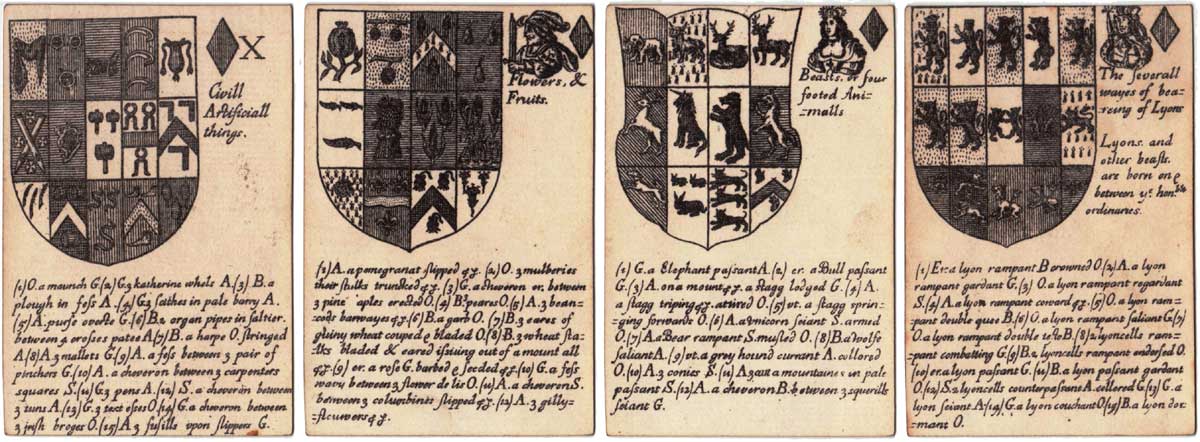 X
Civill
Artificiall
things.
(1) O. a maunch G. (2) G. 3 katherine whels A. (3) B. a
plough in fess A. (4) G. 3 sithes in pale barry A.
(5) A. purse overte G. (6) B. 2 organ pipes in saltier.
between 4 crosses patee A. (7) B. a harpe O. stringed
A. (8) A. 3 mallets G. (9) A. a fess between 3 pair of
pinchers G. (10) A. a cheveron between 3 carpenters
squares S. (11) G. 3 pens A. (12) S. a cheveron between
3 tuns A. (13) G. 3 text esses O. (14) G. a cheveron between
3 irish broges O. (15) A. 3 fusills upon slippers G.
Flowers, &
Fruits.
(1) A. a pomegranat slipped &c. (2) O. 3 mulberies
their stulks truncked &c. (3) G. a cheveron er. between
3 pine aples erected O. (4) B. 3 peares O. (5) A. 3 bean-
cods barwayes &c. (6) B. a garb O. (7) B. 3 eares of
guiny wheat couped & bladed O. (8) B. 3 wheat sta-
lks bladed & eared issuing out of a mount all
&c. (9) er. a rose G. barbed & seeded &c. (10) G. a fess
wavy between 3 flower de lis O. (11) A. a cheveron S.
between 3 columbines slipped &c. (12) A. 3 gilly-
flouwers &c.
Beasts, or four
footed Ani-
-malls
(1) G. a Elephant passant A. (2) er. a Bull passant
G. (3) A. on a mount &c. a stagg lodged G. (4) A.
a stagg triping &c. attired O. (5) vt. a stagg sprin-
ging forwards O. (6) A. a unicorn seiant S. armed
O. (7) A. a Bear rampant S. musled O. (8) B. a wolfe
saliant A. (9) vt. a grey hound currant A. collored
O. (10) A. 3 conies S. (11) A. 3 cat a mountaines in pale
passant S. (12) A. a cheveron B. between 3 squerills
seiant G.
The severall
wayes of bea-
-reing of Lyons
Lyons. and
other beasts.
are born on &
between ye. honble
ordinaries.
(1) Er. a lyon rampant B. crowned O. (2) A. a lyon
rampant gardant G. (3) O. a lyon rampant regardant
S. (4) A. a lyon rampant coward &c. (5) O. a lyon ram-
pant double queé B. (6) O. a lyon rampant saliant G. (7)
O. a lyon rampant double teté B. (8) 2 lyoncells ram-
pant combatting G. (9) B. 2 lyoncells rampant endorsed O.
(10) er. a lyon passant G. (11) B. a lyon passant gardant
O. (12) S. 2 lyoncells counterpassant A. collered G. (13) G. a
lyon seiant A. (14) G. a lyon couchant O. (15) B. a lyon dor-
-mant O.